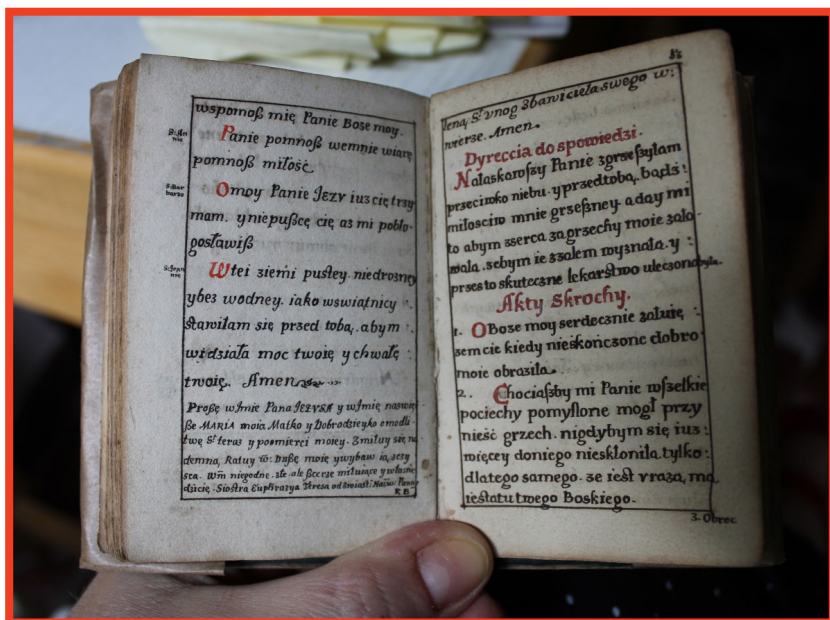 wspomoß mię Panie Bose moy.
Panie pomnoß wemnie wiarę
pomnoß miłość
O moy Panie Jezv iuz cię trzy
mam. yniepußcę cię aż mi pobło-
gosławiß
W tei ziemi pustey. niedrozney
ybez wodney. iako wswiątnicy
stawiłam się przed tobą. abym
widziała moc twoię y chwałę
twoię. Amen
Proßę wJmie Pana JEZVSA y wJmię naswię-
ße MARIA moia Matko y Dobrodzieyko o modli
twę S. teraz y posmierci moiey. Zmiłuy się na
demną, Ratuy Dußę moię ywybaw ią
niegodne. złe. ale ßcerze miłuiące y własne
Siostra Euphrazya Teresa od
82
Zbawiciela swego w:
wierze. Amen.
Dyreccia do spowiedzi.
Nałaskawszy Panie zgrzeszyłam
przeciwko niebu. y przed tobą. bądź
miłosciw mnie grzeßney. a day mi
to abym zserca za grzechy moie zało-
wała. sebym ie zzalem wyznała. y
przes to skuteczne lekarstwo uleczona była.
Akty Skrochy.
1. O Bose moy serdecznie załuię
zem cie kiedy nieskończone dobro
moie obraziła.
2. Chociaßby mi Panie wßelkie
pociechy pomyslone mogł przy
nieść grzech. nigdybym się iuz
więcey doniego niesklonila. tylko
dlatego samego. ze iest vraza, ma
iestatu twego Boskiego.
3. Obrec